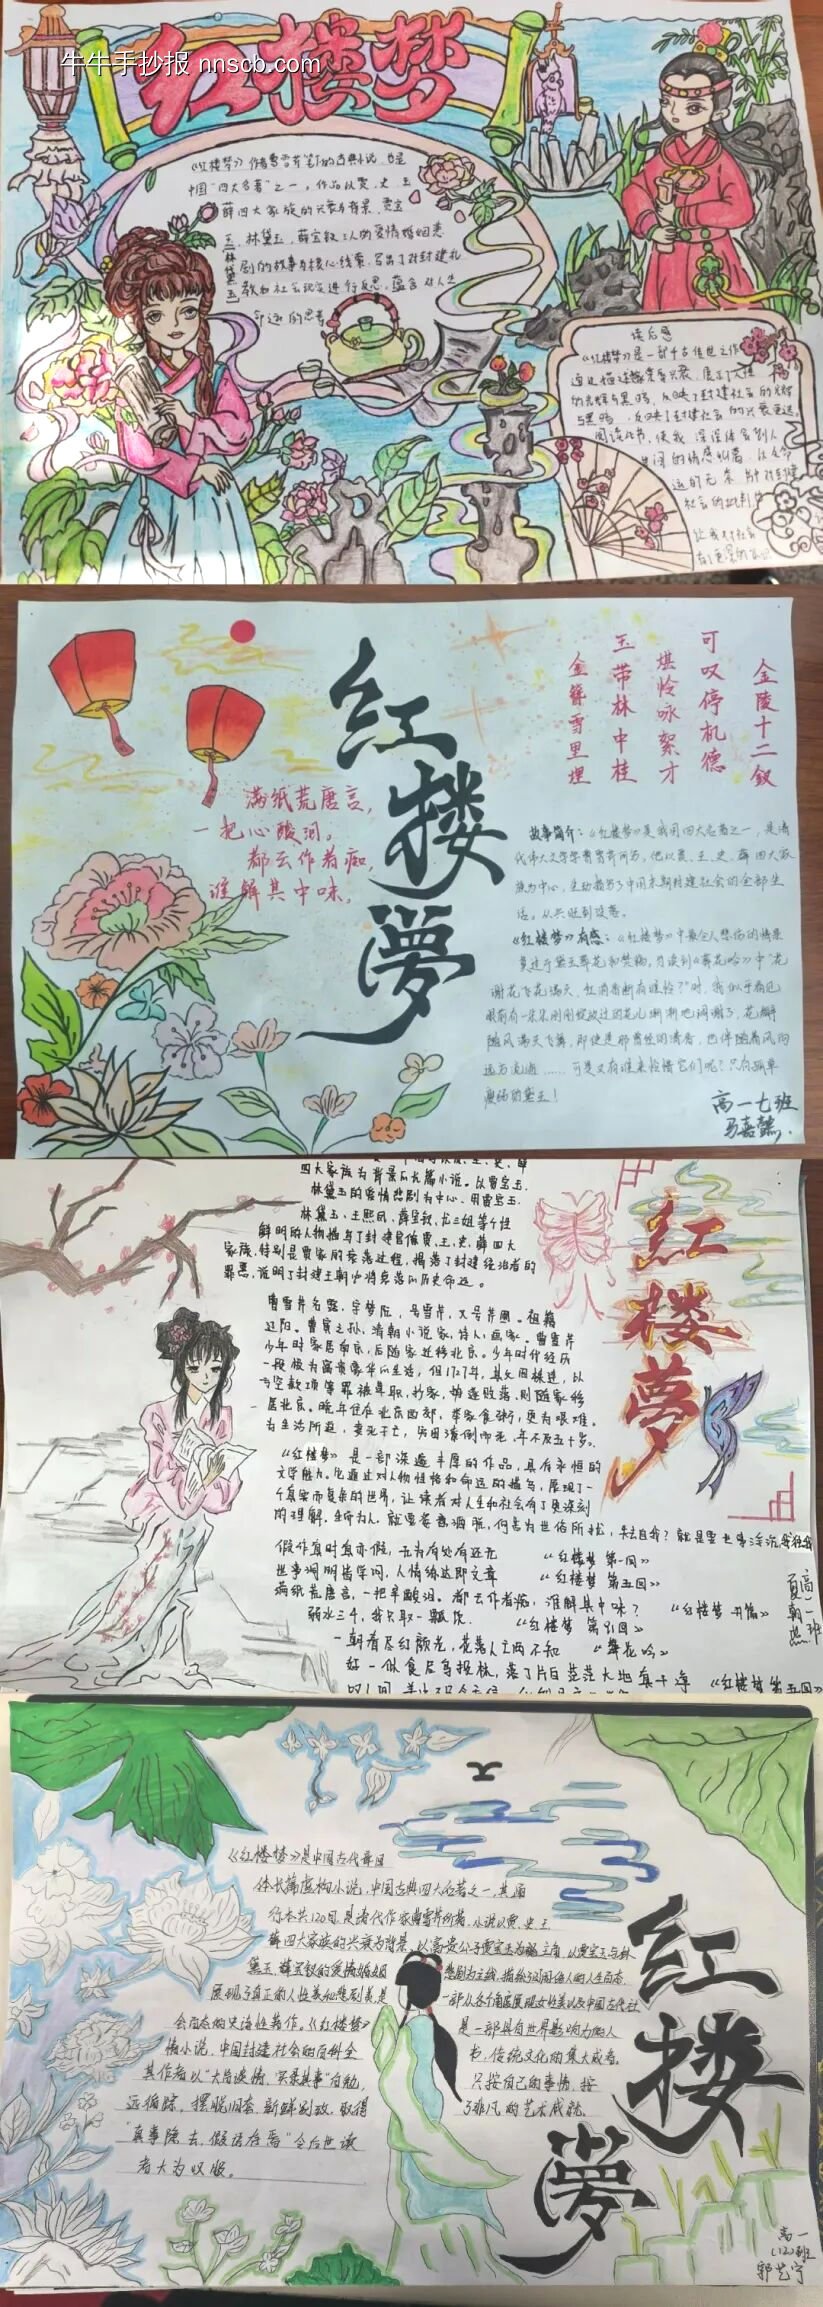 牛牛手抄报 nnscb.com
红楼梦
《红楼梦》作者曹雪芹笔下的古典小说,也是
中国"四大名著"之一。作品以贾、史、王
薛四大家族的兴衰为背景,贾宝
玉、林黛玉、薛宝钗三人的爱情婚姻悲
剧的故事为核心线索,写出了对封建礼
教和社会现实进行反思,蕴含对人生
命运的思考
林黛玉
读后感
《红楼梦》是一部千古传世之作
通过描述
的光辉与黑暗,反映了封建社会的光辉
与黑暗,反映了封建社会的兴衰更迭。
阅读此书,使我深深体会到人
世间的情感
社会的批判
让我对社会
红楼夢
满纸荒唐言,
一把心酸泪。
都云作者痴,
谁解其中味。
金陵十二钗
可叹停机德
堪怜咏絮才
玉带林中挂
金簪雪里埋
故事简介:《红楼梦》是我国四大名著之一,是清
代伟大文学家曹雪芹所写。他以贾、王、史、薛四大家
族为中心,生动描写了中国末期封建社会的全部生
活。从兴旺到没落。
《红楼梦》有感:《红楼梦》中最令人悲伤的情景
莫过于黛玉葬花和焚稿。当读到《葬花吟》中"花
谢花飞花满天,红消香断有谁怜?"时,我似乎看见
眼前有一朵朵刚刚绽放过的花儿渐渐地凋谢了,花瓣
随风满天飞舞,即使是那曾经的清香,也伴随着风向
远方流逝……可是又有谁来怜惜它们呢?只有孤单
瘦弱的黛玉!
高一七班
马嘉懿
红楼夢
四大家族为背景的长篇小说。以贾宝玉、
林黛玉的爱情悲剧为中心,用贾宝玉、
林黛玉、王熙凤、薛宝钗、尤三姐等个性
鲜明的人物描写了封建官僚贾、王、史、薛四大
家族,特别是贾家的衰落过程,揭落了封建统治者的
罪恶,说明了封建王朝必将衰落的历史命运。
曹雪芹名霑,字梦阮,号雪芹,又号芹圃。祖籍
辽阳。曹寅之孙,清朝小说家,诗人,画家。曹雪芹
少年时家居南京,后随家迁移北京。少年时代经历
一段极为富贵豪华的生活,但1727年,其父因株连,以
亏空款项等罪被革职,抄家,确遂败落,则随家移
居北京。晚年住在北京西郊,举家食粥,更为艰难。
为生活所迫,妻死子亡,穷困潦倒而死,年不及五十岁。
《红楼梦》是一部深邃丰厚的作品,具有永恒的
文学魅力。它通过对人物性格和命运的描写,展现了一
个真实而复杂的世界,让读者对人生和社会有了更深刻
的理解。生而为人,就要姿意洒脱,何苦为世俗所扰,失去自我?就是要
假作真时真亦假,无为有处有还无 《红楼梦 第一回》
世事洞明皆学问,人情练达即文章 《红楼梦 第五回》
满纸荒唐言,一把辛酸泪。都云作者痴,谁解其中味? 《红楼梦 开篇》
弱水三千,我只取一瓢饮。 《红楼梦 第91回》
一朝春尽红颜老,花落人亡两不知 《葬花吟》
好一似食尽鸟投林,落了片白茫茫大地真干净 《红楼梦 第五回》
高一一班
夏朝燕
《红楼梦》是中国古代章回
体长篇虚构小说,中国古典四大名著之一,其通
行本共120回,是清代作家曹雪芹所著。小说以贾、史、王
薛四大家族的兴衰为背景,以富贵公子贾宝玉为视角,以贾宝玉与林
黛玉、薛宝钗的爱情婚姻悲剧为主线,描绘了闺阁佳人的人生百态
展现了真正的人性美和悲剧美,是一部从各个角度展现女性美以及中国古代社
会百态的史诗性著作。《红楼梦》是一部具有世界影响力的人
情小说,中国封建社会的百科全书,传统文化的集大成者。
其作者以"大旨谈情,实录其事"自勉,只按自己的事情,按
远循踪,摆脱旧套,新鲜别致,取得了非凡的艺术成就。
"真事隐去,假语存焉"令后世读
者大为叹服。
红楼夢
高一
(12)班
郭艺宁